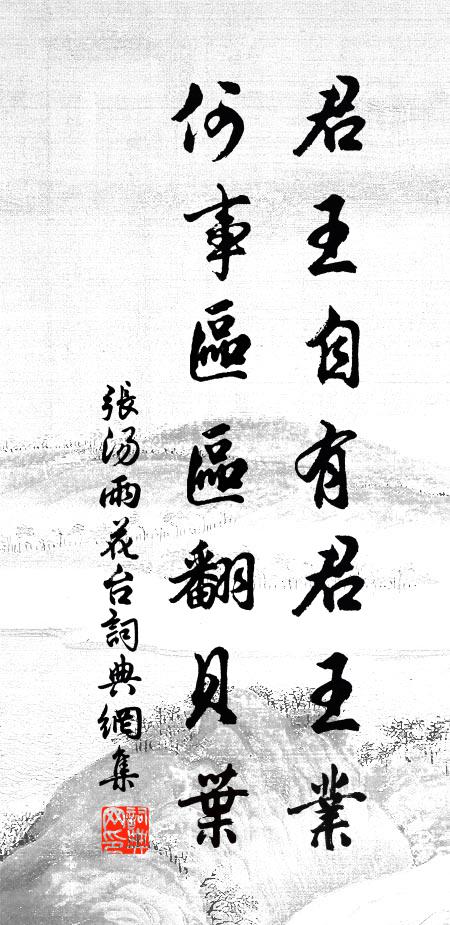 君王自有君王業
何事區區翻貝葉
張湯雨花台詞典網集